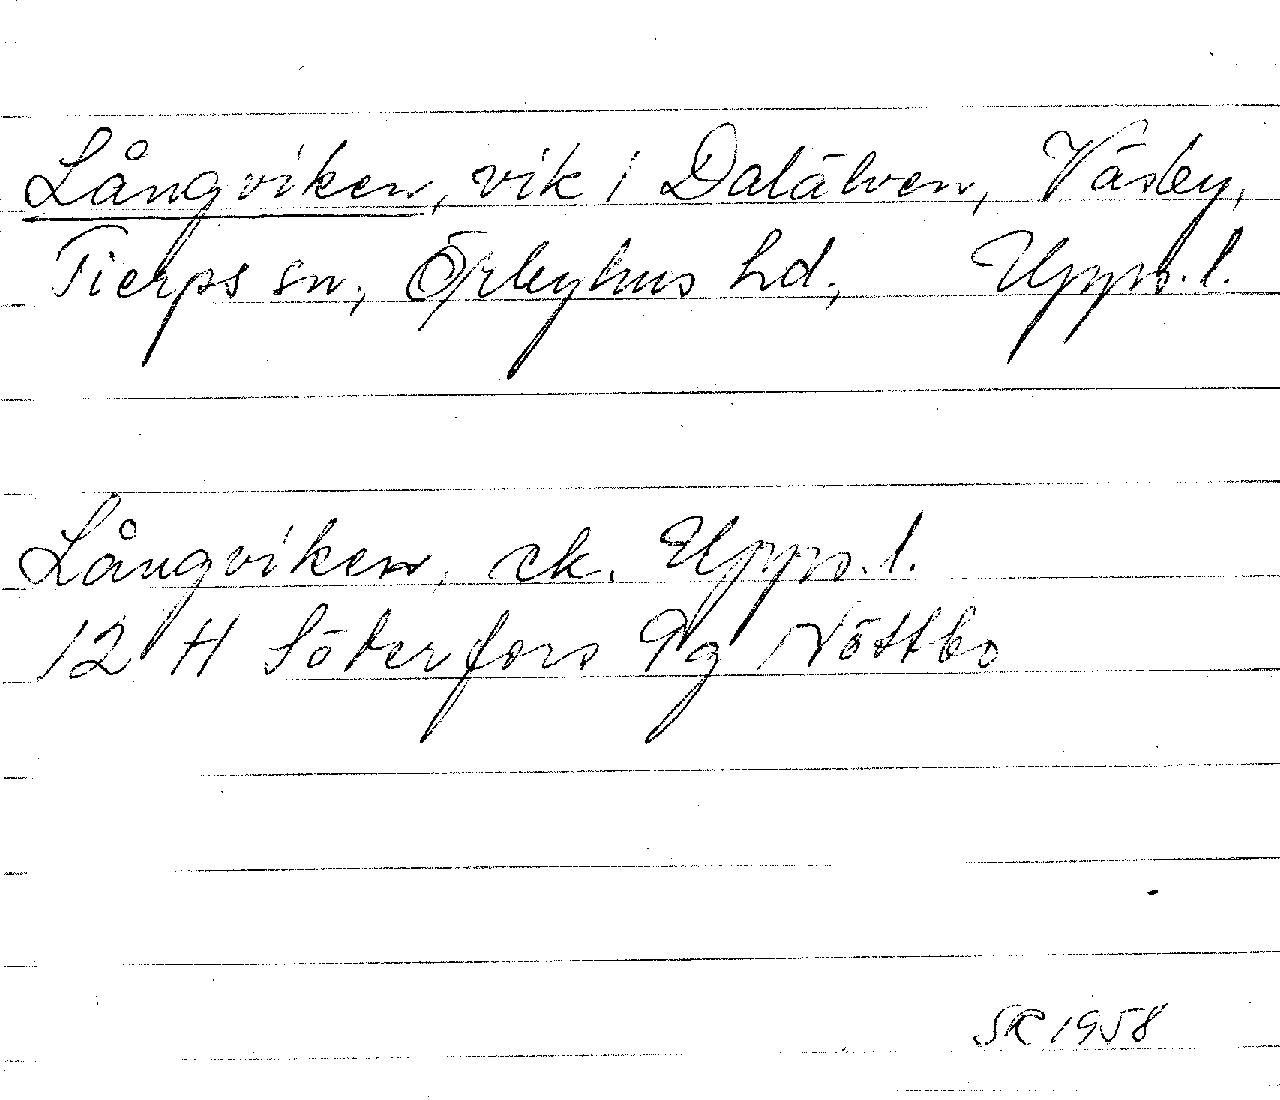 Långviken, vik i Dalälven, Väsby,
Tierps sn, Örbyhus hd, Upps. l.
Långviken, ek. Upps. l.
12 H Söderfors 9g Nöttbo
SR 1958